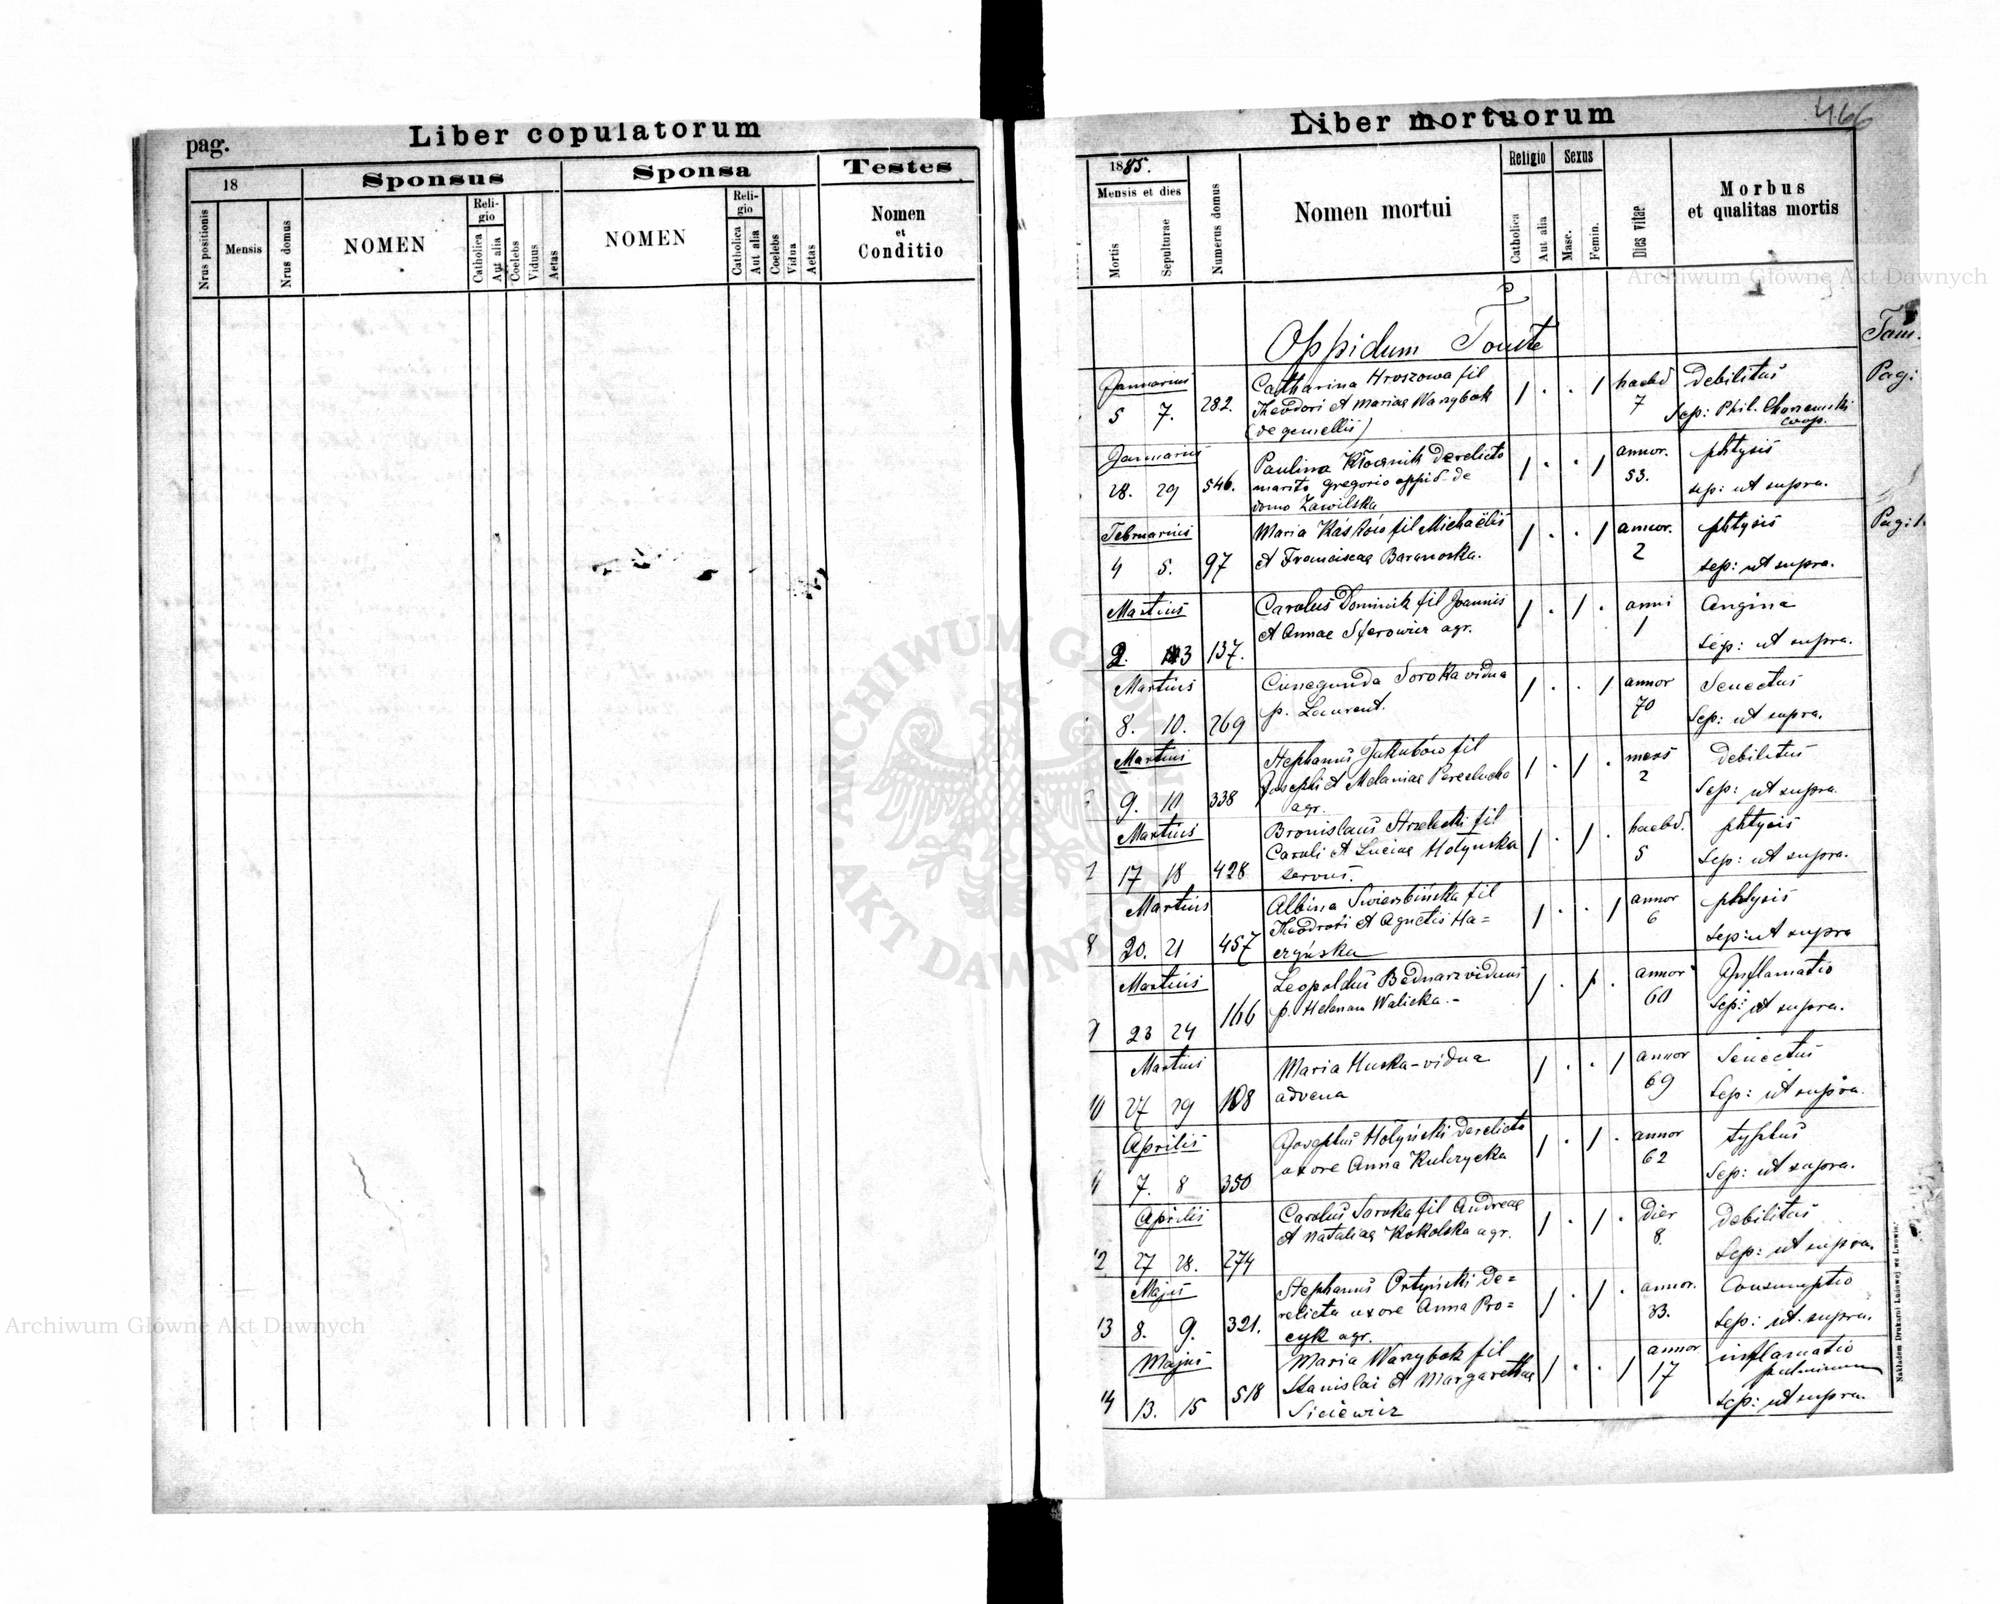 pag.
Liber copulatorum
18
Sponsus
Sponsa
Testes
Nrus positionis
Mensis
Nrus domus
NOMEN
Religio
Catholica
Aut alia
Coelebs
Viduus
Aetas
NOMEN
Religio
Catholica
Aut alia
Coelebs
Vidua
Aetas
Nomen
et
Conditio
Liber mortuorum
466
1885.
Mensis et dies
Mortis
Sepulturae
Numerus domus
Nomen mortui
Religio
Catholica
Aut alia
Sexus
Masc.
Femin.
Dies vitae
Morbus
et qualitas mortis
Oppidum Touste
Januarius
5 7. 282.
Catharina Hroszowa fil
Theodori et Mariae Warzybok
(de gemellis)
1 . . 1
haebd
7
Debilitas
Sep: Phil.
coop.
Januarius
28. 29 546.
Paulina derelicto
marito gregorio oppid. de
domo Zawilska
1 . . 1
annor.
53.
phtysis
sep: ut supra.
Februarius
4 5. 97
Maria fil Michaëlis
et Franciscae Baranoska.
1 . . 1
annor.
2
phtysis
sep: ut supra.
Martius
2. 3 137.
Carolus Dominik fil Joannis
et Annae agr.
1 . 1 .
anni
1
Angina
Sep: ut supra.
Martius
8. 10. 269
Cunegunda Soroka vidua
p. Laurent.
1 . . 1
annor
70
Senectus
Sep: ut supra.
Martius
9. 10 338
Stephanus Jakubów fil
Josephi et Melaniae
agr.
1 . 1 .
mens
2
Debilitas
Sep: ut supra.
Martius
17 18 428
Bronislaus Strzelecki fil
Caroli et Luciae Hołyńska
servus.
1 . 1 .
haebd.
5
phtysis
Sep: ut supra.
Martius
8 20. 21 457
Albina Swierzbińska fil
Theodori et Agnetis Ha=
czyńska
1 . . 1
annor
6
phtysis
Sep: ut supra
Martius
9 23 24 166
Leopoldus Bednarz viduus
p. Helenam Waliska.-
1 . 1 .
annor
60
Inflamatio
Sep: ut supra.
Martius
10 27 29 108
Maria Huska - vidua
advena
1 . . 1
annor
69
Senectus
Sep: ut supra.
Aprilis
7. 8 350
Josephus Hołyński derelicta
uxore Anna Kulczycka
1 . 1 .
annor
62
typhus
Sep: ut supra.
Aprilis
12 27 28. 274
Carolus Soroka fil Andreae
et Nataliae Kokolska agr.
1 . 1 .
dier
8.
Debilitas
Sep: ut supra.
Majus
13 8. 9. 321.
Stephanus Ortyński de=
relicta uxore Anna Pro=
cyk agr.
1 . 1 .
annor.
33.
Consumptio
Sep: ut supra.
Majus
14 13. 15 518
Maria Warzybok fil
Stanislai et Margarethae
Siciewicz
1 . . 1
annor
17
inflamatio
pulminum
Sep: ut supra.
Nakładem Drukarni Ludowej we Lwowie.
Tom.
Pag:
Pag: 1.
Archiwum Główne Akt Dawnych
Archiwum Główne Akt Dawnych
ARCHIWUM GŁÓWNE
AKT DAWNYCH